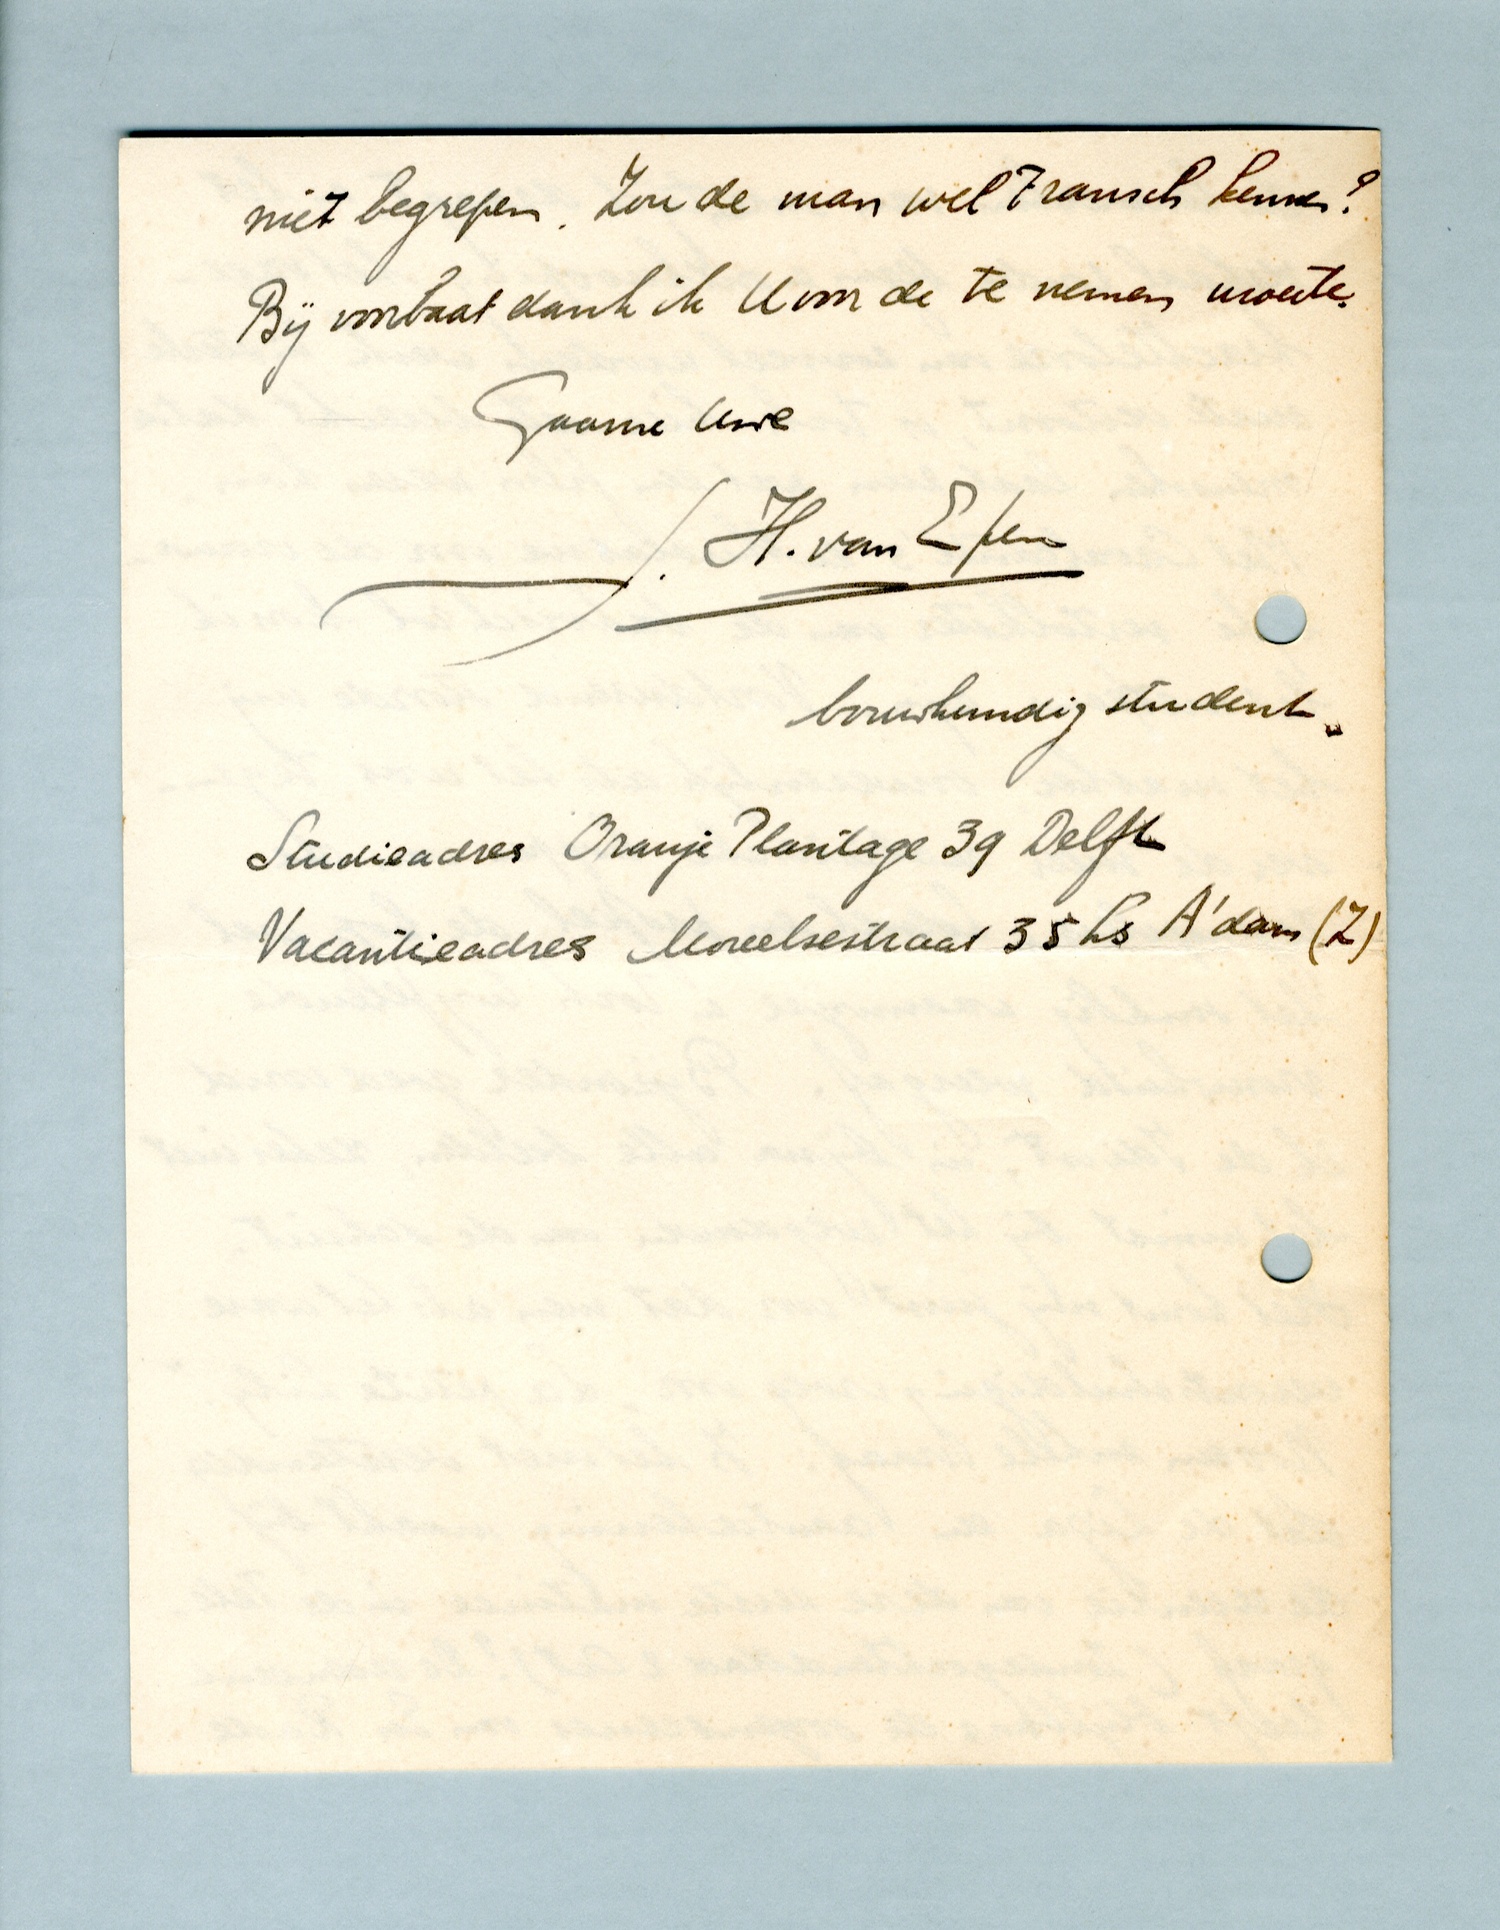 niet begrepen. Zou de man wel Fransch kennen?
Bij voorbaat dank ik U voor de te nemen moeite.
Gaarne Uwe
J. H. van Epen
bouwkundig student.
Studieadres Oranje Plantage 39 Delft
Vacantieadres Moreelsestraat 35 hs A'dam (Z)